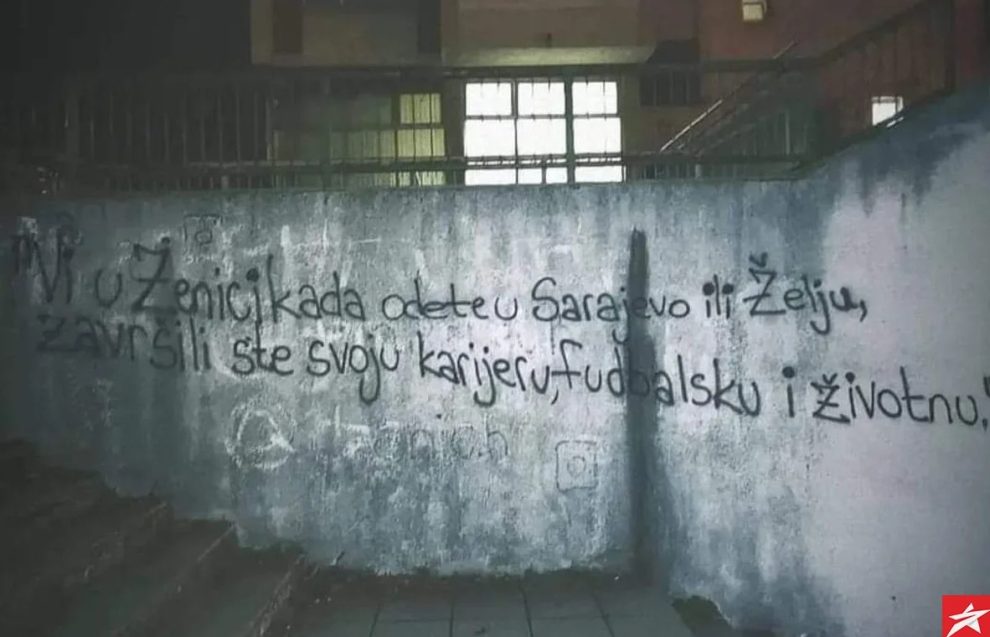 "Vi u Zenici, kada odete u Sarajevo ili Želju,
završili ste svoju karijeru, fudbalsku i životnu."